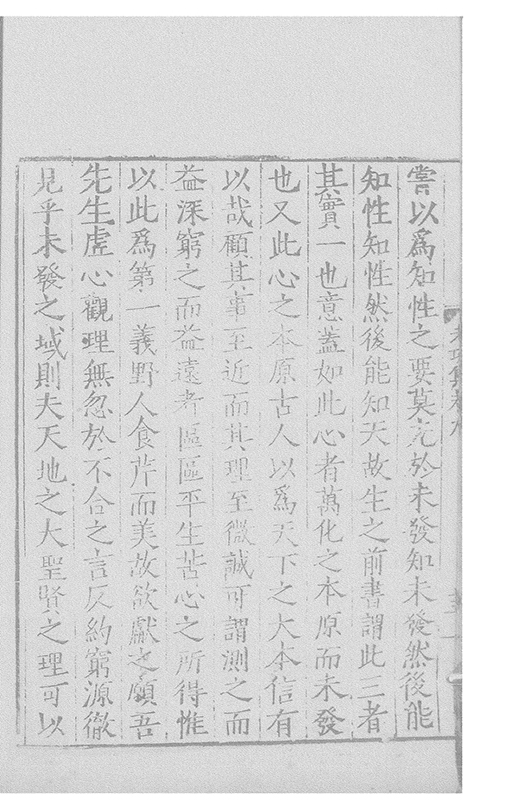 嘗以爲知性之要莫先於未發知未發然後能
知性知性然後能知天故生之前書謂此三者
其實一也意蓋如此心者萬化之本原而未發
也又此心之本原古人以爲天下之大本信有
以哉顧其事至近而其理至微誠可謂測之而
益深窮之而益遠者區區平生苦心之所得惟
以此爲第一義野人食芹而美故欲獻之願吾
先生虛心觀理無忽於不合之言反約窮源徹
見乎未發之域則夫天地之大聖賢之理可以